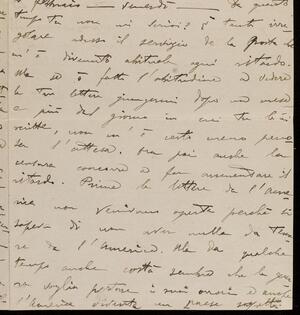 e pensavo — venendo — Da quanto
tempo tu non mi scrivi? È tanto irre-
golare adesso il servizio de la posta che
m'è divenuto abituale ogni ritardo.
Ma se è fatta l'abitudine a vedere
le tue lettere giungermi dopo un mese
e più del giorno in cui tu le hai
scritte, non m'è certo meno penosa
l'attesa. Ora poi anche la
censura concorre a far aumentare il
ritardo. Prima le lettere de l'Ame-
rica non venivano aperte perché si
sapeva di non aver nulla da teme-
re da l'America. Ma da qualche
tempo anche costà sembra che la guer-
ra voglia portare i suoi orrori e anche
l'America diventa un paese sospetto